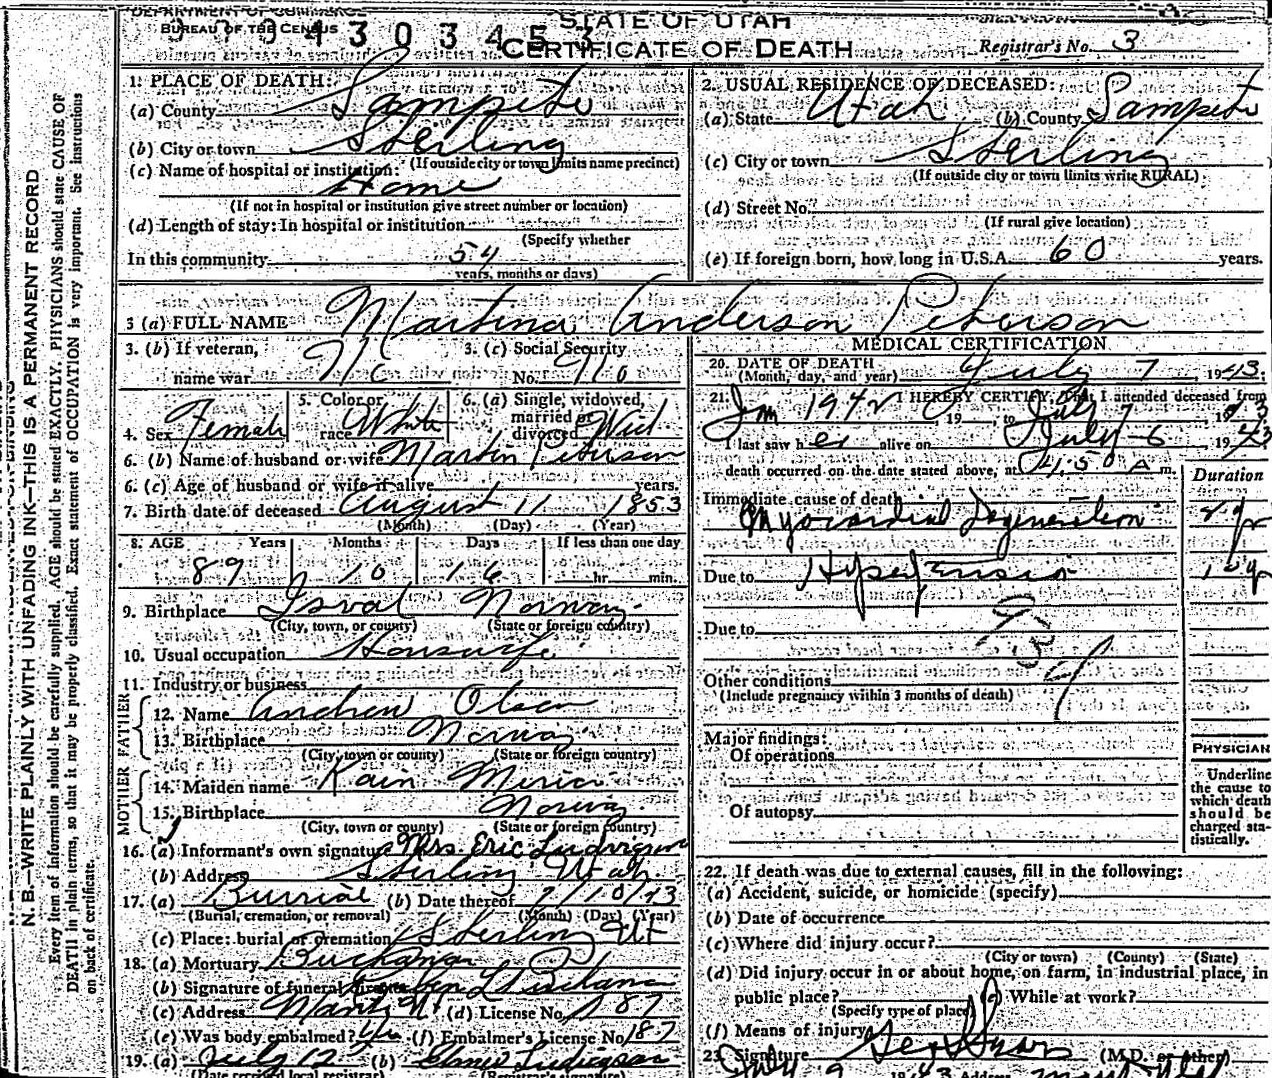 DEPARTMENT OF COMMERCE
BUREAU OF THE CENSUS
STATE OF UTAH
CERTIFICATE OF DEATH
Registrar's No. 3
1. PLACE OF DEATH:
(a) County Sampete
(b) City or town Sterling
(If outside city or town limits name precinct)
(c) Name of hospital or institution:
Home
(If not in hospital or institution give street number or location)
(d) Length of stay: In hospital or institution
(Specify whether
In this community 54
years, months or days)
2. USUAL RESIDENCE OF DECEASED:
(a) State Utah (b) County Sampete
(c) City or town Sterling
(If outside city or town limits write RURAL)
(d) Street No.
(If rural give location)
(e) If foreign born, how long in U.S.A. 60 years.
3 (a) FULL NAME Martina Anderson Peterson
3. (b) If veteran, name war No
3. (c) Social Security No. No
4. Sex Female
5. Color or race White
6. (a) Single, widowed, married or divorced Wid
6. (b) Name of husband or wife Martin Peterson
6. (c) Age of husband or wife if alive years.
7. Birth date of deceased August 11 1853
(Month) (Day) (Year)
8. AGE Years Months Days If less than one day
89 10 16 hr. min.
9. Birthplace Norway
(City, town, or county) (State or foreign country)
10. Usual occupation Housewife
11. Industry or business
FATHER
12. Name Andrew Olsen
13. Birthplace Norway
(City, town or county) (State or foreign country)
MOTHER
14. Maiden name
15. Birthplace Norway
(City, town or county) (State or foreign country)
16. (a) Informant's own signature Mrs. Eric Ludvigson
(b) Address Sterling Utah
17. (a) Burrial (b) Date thereof 7/10/43
(Burial, cremation, or removal) (Month) (Day) (Year)
(c) Place: burial or cremation Sterling Ut
18. (a) Mortuary Buchanan
(b) Signature of funeral director
(c) Address Manti Ut (d) License No. 187
(e) Was body embalmed? Yes (f) Embalmer's License No. 187
19. (a) July 12 (b) Elmer Ludvigson
(Date received local registrar) (Registrar's signature)
MEDICAL CERTIFICATION
20. DATE OF DEATH
(Month, day, and year) July 7 1943.
21. I HEREBY CERTIFY, That I attended deceased from
Jan 1942, 19 , to July 7, 1943
I last saw her alive on July 6 1943
death occurred on the date stated above, at 4:50 A m.
Duration
Immediate cause of death
Myocardial Degeneration
Due to Hypertension
Due to
Other conditions
(Include pregnancy within 3 months of death)
Major findings:
Of operations
Of autopsy
PHYSICIAN
Underline
the cause to
which death
should be
charged sta-
tistically.
22. If death was due to external causes, fill in the following:
(a) Accident, suicide, or homicide (specify)
(b) Date of occurrence
(c) Where did injury occur?
(City or town) (County) (State)
(d) Did injury occur in or about home, on farm, in industrial place, in
public place? (e) While at work?
(Specify type of place)
(f) Means of injury
23. Signature (M.D. or other)
July 9 1943 Address
N. B.—WRITE PLAINLY WITH UNFADING INK—THIS IS A PERMANENT RECORD
Every item of information should be carefully supplied. AGE should be stated EXACTLY. PHYSICIANS should state CAUSE OF
DEATH in plain terms, so that it may be properly classified. Exact statement of OCCUPATION is very important. See instructions
on back of certificate.